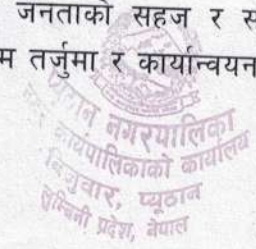 जनताको सहज र स
म तर्जुमा र कार्यान्वयन
प्यूठान नगरपालिका
नगर कार्यपालिकाको कार्यालय
बिजुवार, प्यूठान
लुम्बिनी प्रदेश, नेपाल